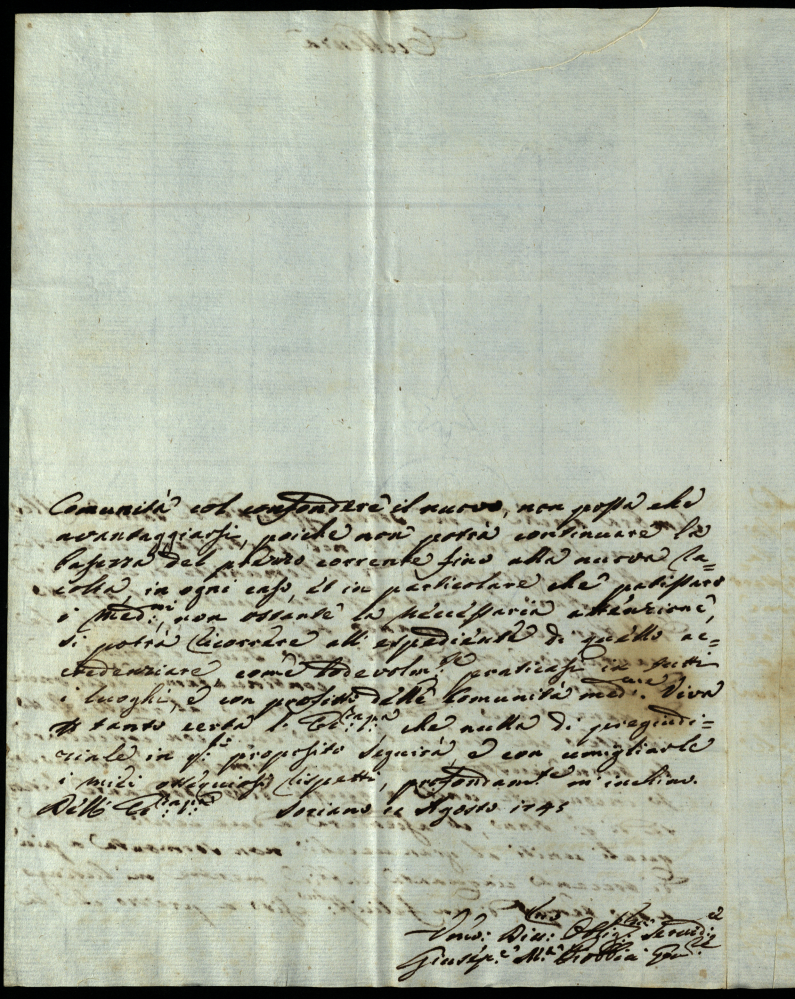 Comunità col confondere il nuovo, non possa che
avantaggiarsi, poiche non potrà continuare la
bassezza del prezzo corrente fino alla nuova Ra=
colta, in ogni caso, et in particolare che patissero
i med:mi, non ostante la necessaria attenzione,
si potrà ricorrere all' espediente di quello ac=
credenziare come lodevolm:te praticasi in tutti
i luoghi, e con profitto delle Comunità med:. Viva
tanto certa l' che nulla di pregiudi=
ziale in proposito seguirà, e con umigliarle
i miei ossequiosi rispetti, profondam:te m'inchino.
Dell' Soriano Agosto 1745
Umo: Serv:
Giusep:e M:a